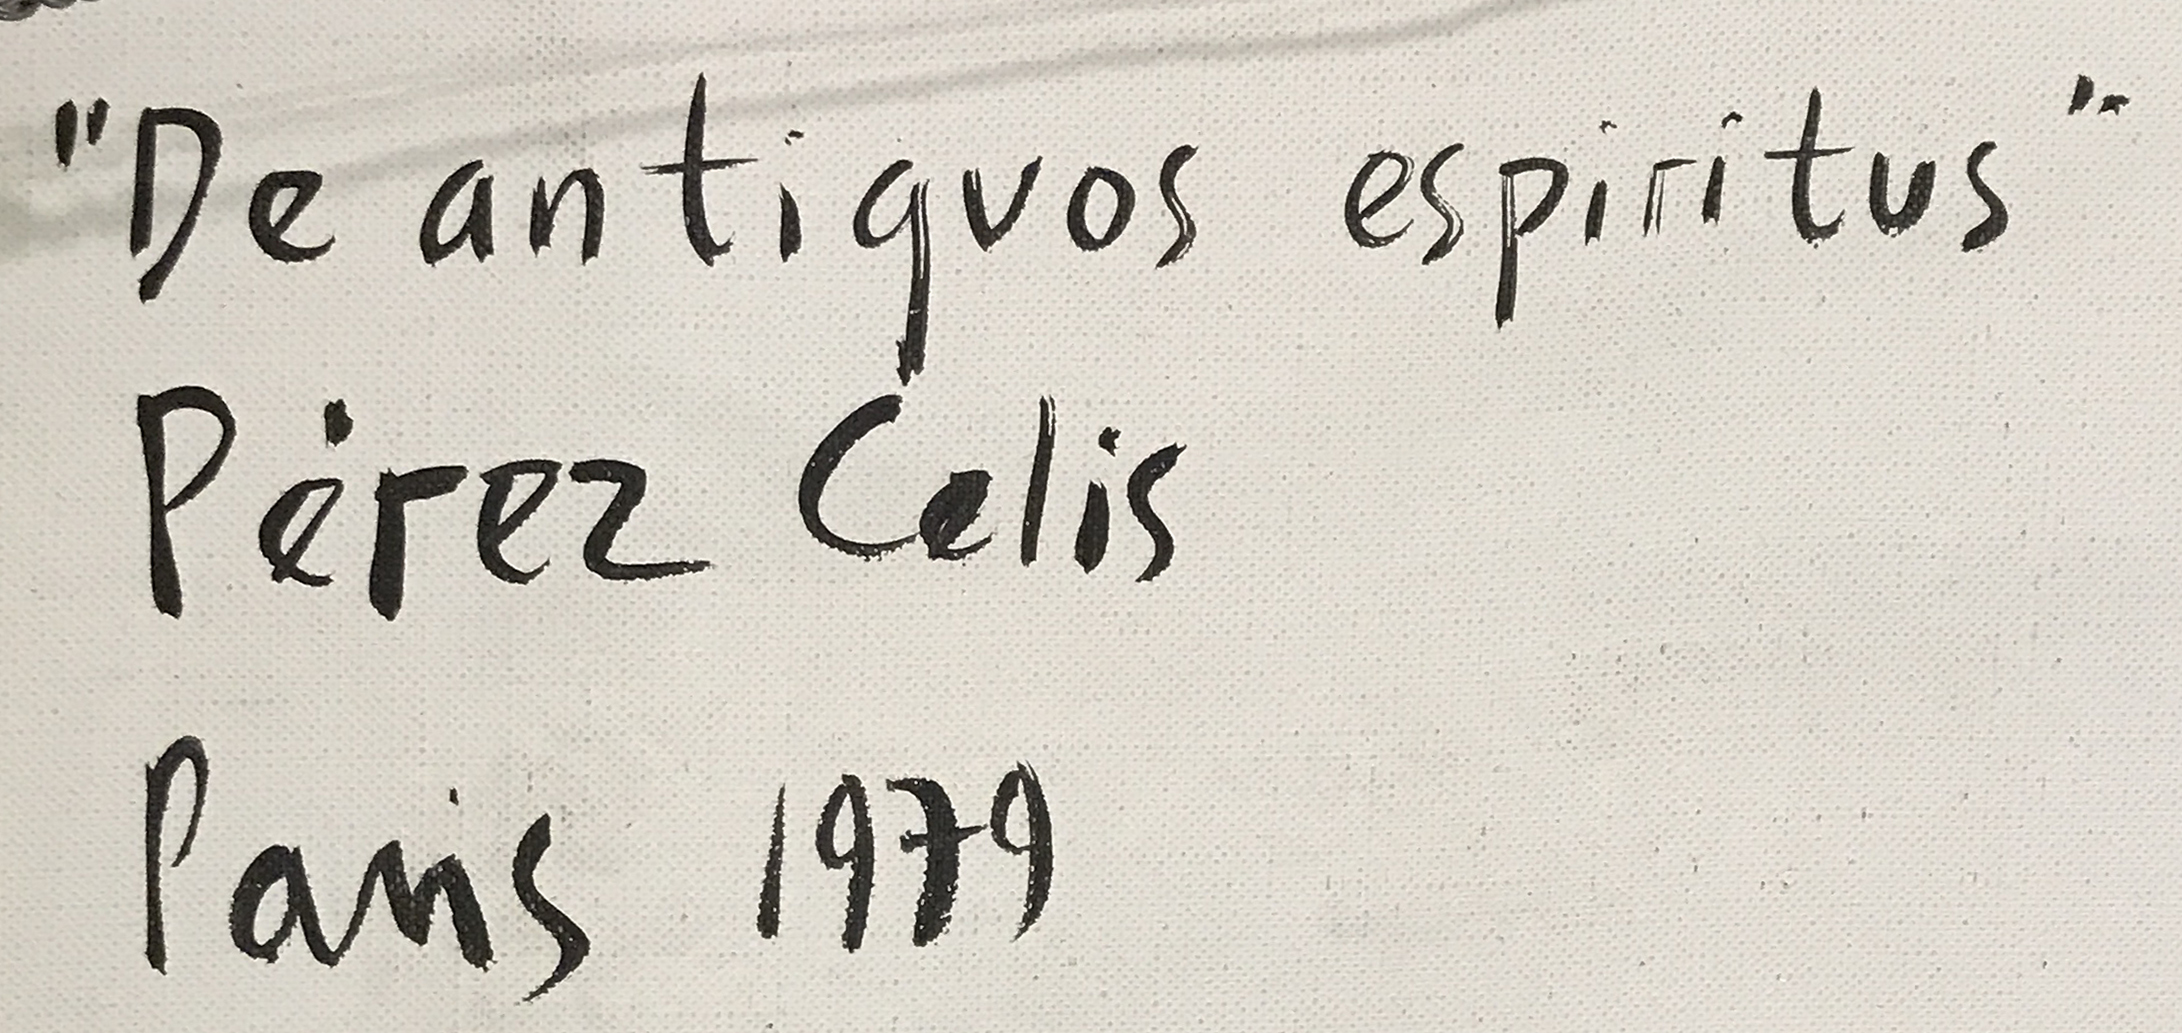 "De antiguos espiritus"
Pérez Celis
Paris 1979